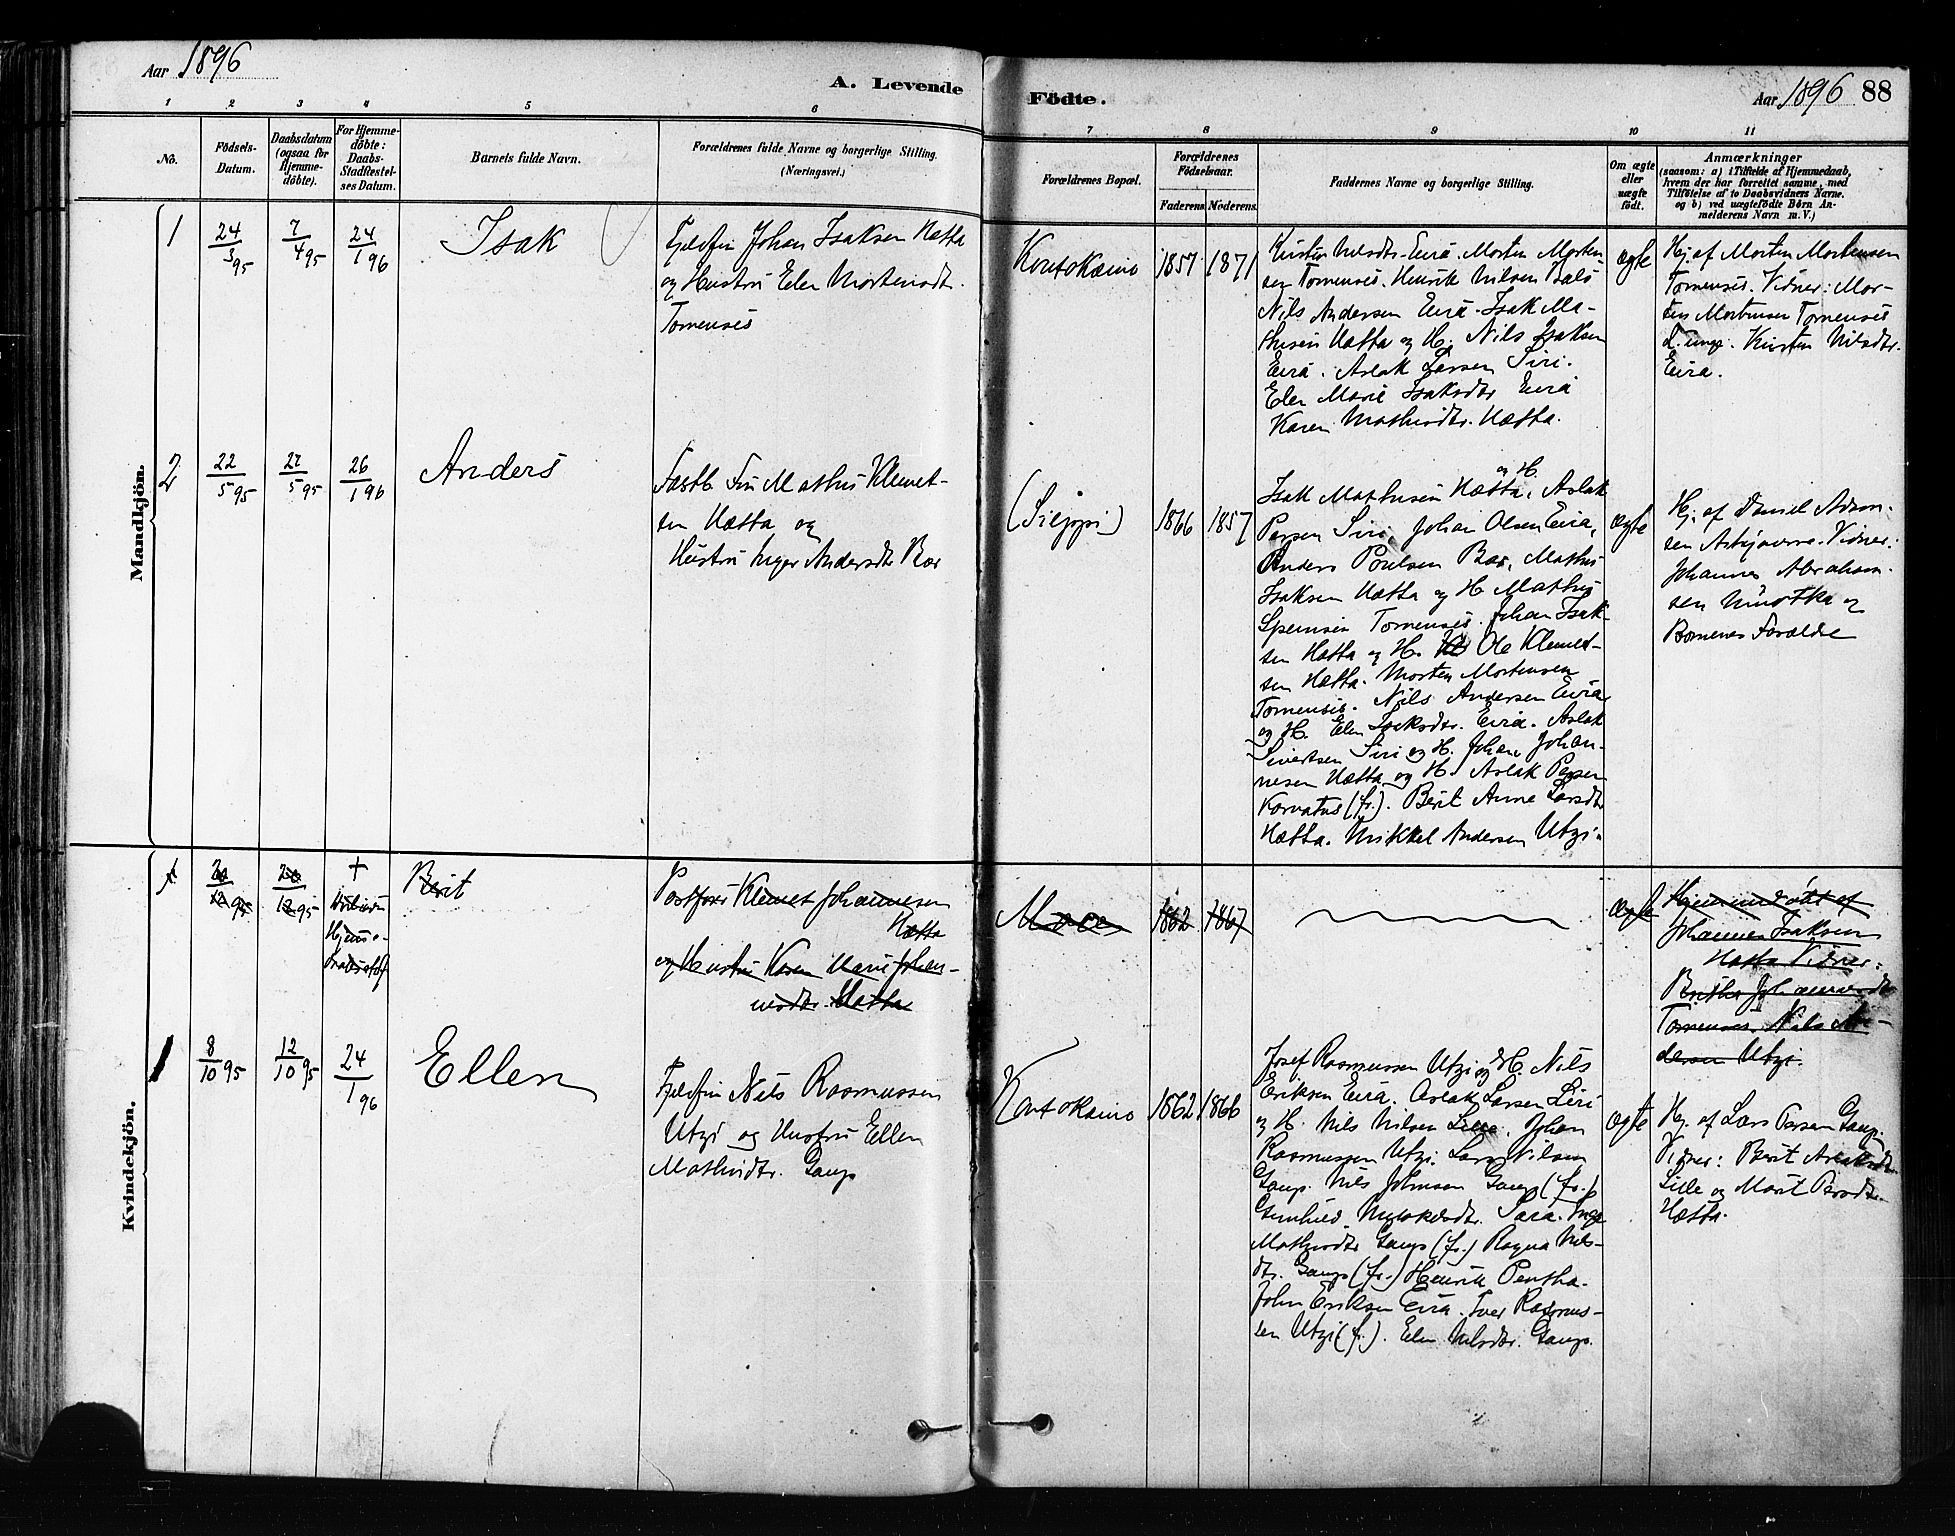 Aar 1896
A. Levende
Födte.
Aar 1896 88
1 2 3 4 5 6 7 8 9 10 11
No.
Födsels-
Datum.
Daabsdatum
(ogsaa for
Hjemme-
döbte).
For Hjemme-
döbte:
Daabs-
Stadfæstel-
ses Datum.
Barnets fulde Navn.
Forældrenes fulde Navne og borgerlige Stilling.
(Næringsvei.)
Forældrenes Bopæl.
Forældrenes
Födselsaar.
Faderens. Moderens.
Faddernes Navne og borgerlige Stilling.
Om ægte
eller
uægte
födt.
Anmærkninger
(saasom: a) i Tilfælde af Hjemmedaab,
hvem der har forrettet samme, med
Tilföielse af to Daabsvidners Navne.
og b) ved uægtefödte Börn An-
melderens Navn m. V.)
Mandkjön.
1
24/3 95
7/4 95
24/1 96
Isak
Fjeldfin Johan Isaksen Hætta
og Hustru Elen Mortensdt.
Tornensis
Koutokæino
1857
1871
Kirsten Nilsdtr Eira. Morten Morten-
sen Tornensis. Henrik Nilsen Bals
Nils Andersen Eira. Isak Ma-
thisen Hætta og H. Nils Isaksen
Eira. Aslak Larsen Siri.
Elen Marie Isaksdtr Eira
Karen Mathisdtr. Hætta.
ægte
Hj. af Morten Mortensen
Tornensis. Vidner: Mor-
ten Mortensen Tornensis
d. unge. Kirsten Nilsdtr.
Eira.
2
22/5 95
27/5 95
26/1 96
Anders
Fastb. Fin Mathis Klemet-
sen Hætta og
Hustru Inger Andersdtr Bær
(Siejppi)
1866
1857
og H.
Isak Mathisen Hætta, Aslak
Persen Siri, Johan Olsen Eira,
Anders Poulsen Bær, Mathis
Isaksen Hætta og H. Mathis
Tornensis. Johan Isak-
sen Hætta og H. Ole Klemet-
sen Hætta. Morten Mortensen
Tornensis. Nils Andersen Eira
og H. Elen Isaksdtr. Eira. Aslak
Sivertsen Siri og H. Johan Johan-
nesen Hætta og H. Aslak Persen
Korvatus (fr.). Berit Anne Larsdtr
Hætta. Mikkel Andersen Utzi.
ægte
Hj. af Daniel Adam-
sen Vidner:
Johannes Abraham-
sen og
Barnets Forældre
Kvindekjön.
1
12 95
12 95
+
Hjemme-
Berit
Postfører Klemet Johannesen
Hætta
og Hustru Karen Marie Johan-
nesdtr. Hætta
1862
1867
ægte
Hjemmedøbt af
Johannes Isaksen
Hætta Vidner:
Johannesdtr
Tornensis. Nils An-
dersen Utzi.
1
8/10 95
12/10 95
24/1 96
Ellen
Fjeldfin Nils Rasmussen
Utzi og Hustru Ellen
Mathisdtr. Gaup
Koutokæino
1862
1866
Josef Rasmussen Utzi og H. Nils
Eriksen Eira. Aslak Larsen Siri
og H. Nils Nilsen. Johan
Rasmussen Utzi. Lars Nilsen
Gaup. Nils Johnsen Gaup (fr.)
Gunhild Sara. Inga
Mathisdtr Gaup (fr.) Ragna Nils-
dtr. Gaup (fr.) Henrik Pentha.
John Eriksen Eira. Iver Rasmus-
sen Utzi (fr.). Elen Nilsdtr. Gaup.
ægte
Hj. af Lars Persen Gaup.
Vidner: Berit Aslaksdtr
Lille og Marit Persdtr
Hætta.